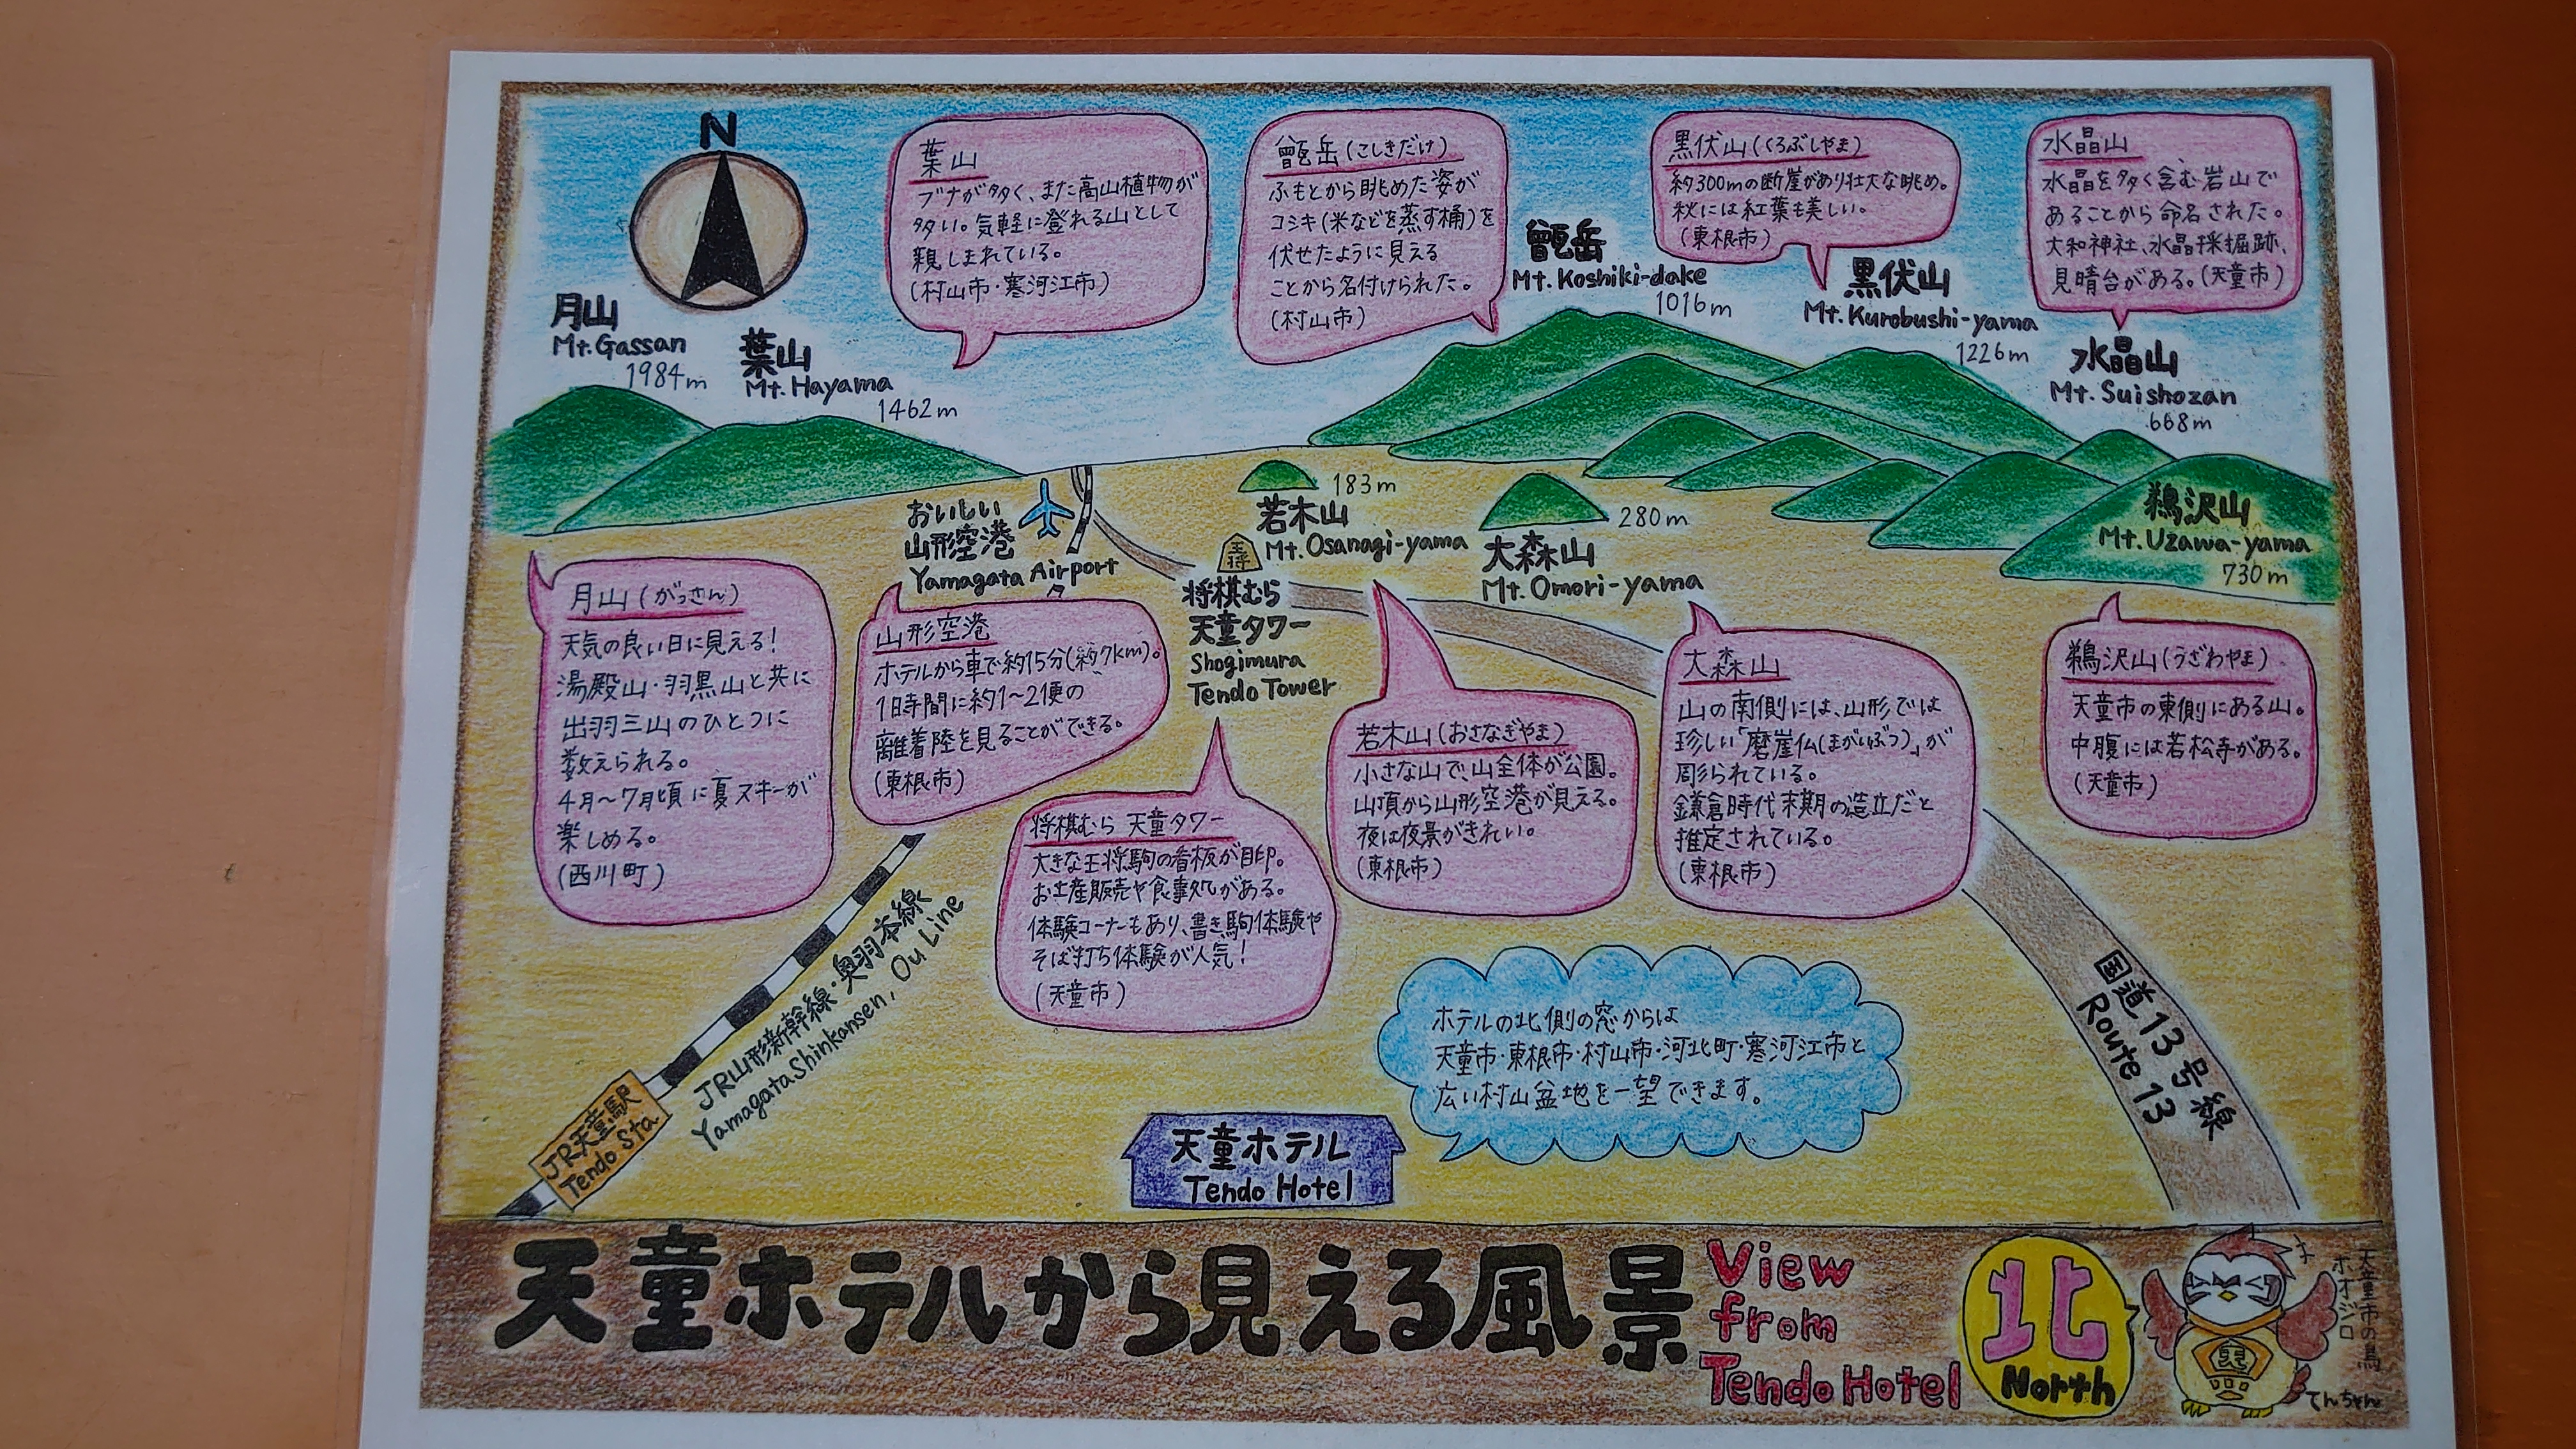 N
葉山
ブナが多く、また高山植物が
多い。気軽に登れる山として
親しまれている。
(村山市・寒河江市)
甑岳(こしきだけ)
ふもとから眺めた姿が
コシキ(米などを蒸す桶)を
伏せたように見える
ことから名付けられた。
(村山市)
黒伏山(くろぶしやま)
約300mの断崖があり壮大な眺め。
秋には紅葉も美しい。
(東根市)
水晶山
水晶を多く含む岩山で
あることから命名された。
大和神社、水晶採掘跡、
見晴台がある。(天童市)
月山
Mt. Gassan
1984m
葉山
Mt. Hayama
1462m
甑岳
Mt. Koshiki-dake
1016m
黒伏山
Mt. Kurobushi-yama
1226m
水晶山
Mt. Suishozan
668m
おいしい
山形空港
Yamagata Airport
王将
将棋むら
天童タワー
Shogimura
Tendo Tower
183m
若木山
Mt. Osanagi-yama
280m
大森山
Mt. Omori-yama
鵜沢山
Mt. Uzawa-yama
730m
月山(がっさん)
天気の良い日に見える!
湯殿山・羽黒山と共に
出羽三山のひとつに
数えられる。
4月〜7月頃に夏スキーが
楽しめる。
(西川町)
山形空港
ホテルから車で約15分(約7km)。
1日時間に約1〜2便の
離着陸を見ることができる。
(東根市)
将棋むら 天童タワー
大きな王将駒の看板が目印。
お土産販売や食事処がある。
体験コーナーもあり、書き駒体験や
そば打ち体験が人気!
(天童市)
若木山(おさなぎやま)
小さな山で、山全体が公園。
山頂から山形空港が見える。
夜は夜景がきれい。
(東根市)
大森山
山の南側には、山形では
珍しい「磨崖仏(まがいぶつ)」が
彫られている。
鎌倉時代末期の造立だと
推定されている。
(東根市)
鵜沢山(うざわやま)
天童市の東側にある山。
中腹には若松寺がある。
(天童市)
JR山形新幹線・奥羽本線
Yamagata Shinkansen, Ou Line
JR天童駅
Tendo Sta
国道13号線
Route 13
ホテルの北側の窓からは
天童市・東根市・村山市・河北町・寒河江市と
広い村山盆地を一望できます。
天童ホテル
Tendo Hotel
天童ホテルから見える風景
View
from
Tendo Hotel
北
North
天童市の鳥
ホオジロ
てんちゃん